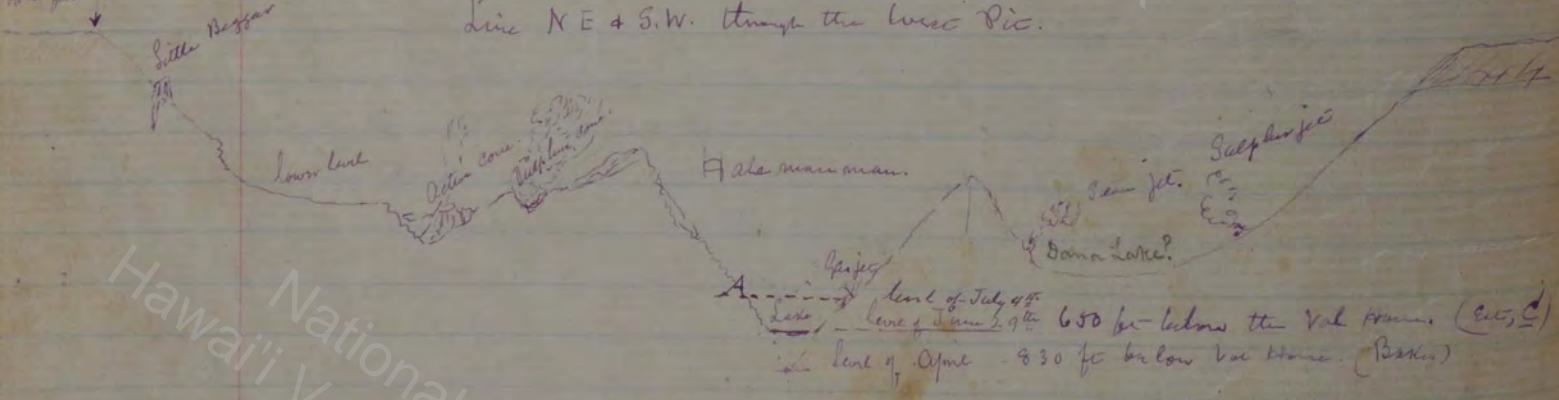 Line N E & S.W. through the
Little Beggar
lower level
Active cone.
Sulphur
Halemaumau.
Steam jet.
Sulphur jet
Dana Lake?
Gas jet
A
Lake
level of July 4th
level of June 29th 650 ft below the Vol House. (Est, C)
level of April 830 ft below Vol House. (Baker)
National
Hawai'i V